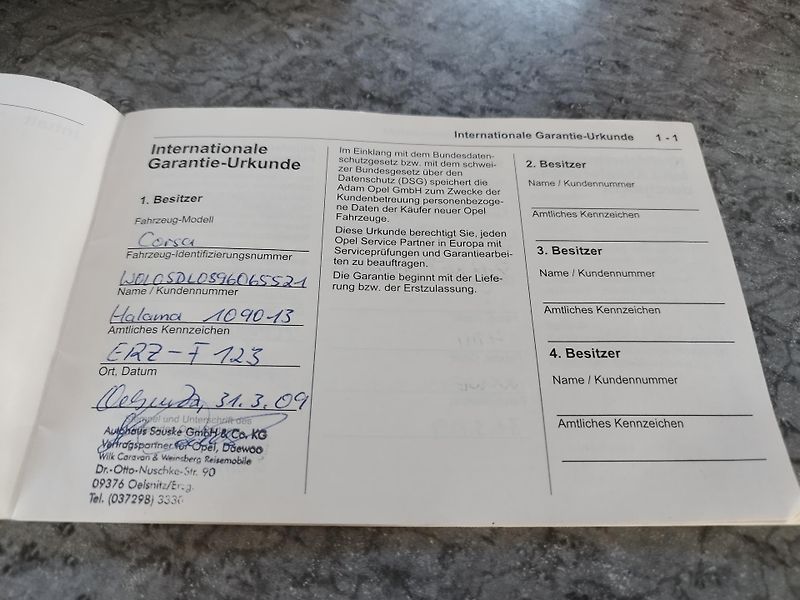 Internationale Garantie-Urkunde 1 - 1
Internationale
Garantie-Urkunde
1. Besitzer
Fahrzeug-Modell
Corsa
Fahrzeug-Identifizierungsnummer
W0L0SDL0896065521
Name / Kundennummer
Halama 109013
Amtliches Kennzeichen
ERZ-F 123
Ort, Datum
31.3.09
Stempel und Unterschrift des
Autohaus Sauske GmbH & Co. KG
Vertragspartner für Opel, Daewoo
Wilk Caravan & Weinsberg Reisemobile
Dr.-Otto-Nuschke-Str. 90
09376 Oelsnitz/Erzg.
Tel. (037298) 333
Im Einklang mit dem Bundesdaten-
schutzgesetz bzw. mit dem schwei-
zer Bundesgesetz über den
Datenschutz (DSG) speichert die
Adam Opel GmbH zum Zwecke der
Kundenbetreuung personenbezoge-
ne Daten der Käufer neuer Opel
Fahrzeuge.
Diese Urkunde berechtigt Sie, jeden
Opel Service Partner in Europa mit
Serviceprüfungen und Garantiearbei-
ten zu beauftragen.
Die Garantie beginnt mit der Liefe-
rung bzw. der Erstzulassung.
2. Besitzer
Name / Kundennummer
Amtliches Kennzeichen
3. Besitzer
Name / Kundennummer
Amtliches Kennzeichen
4. Besitzer
Name / Kundennummer
Amtliches Kennzeichen